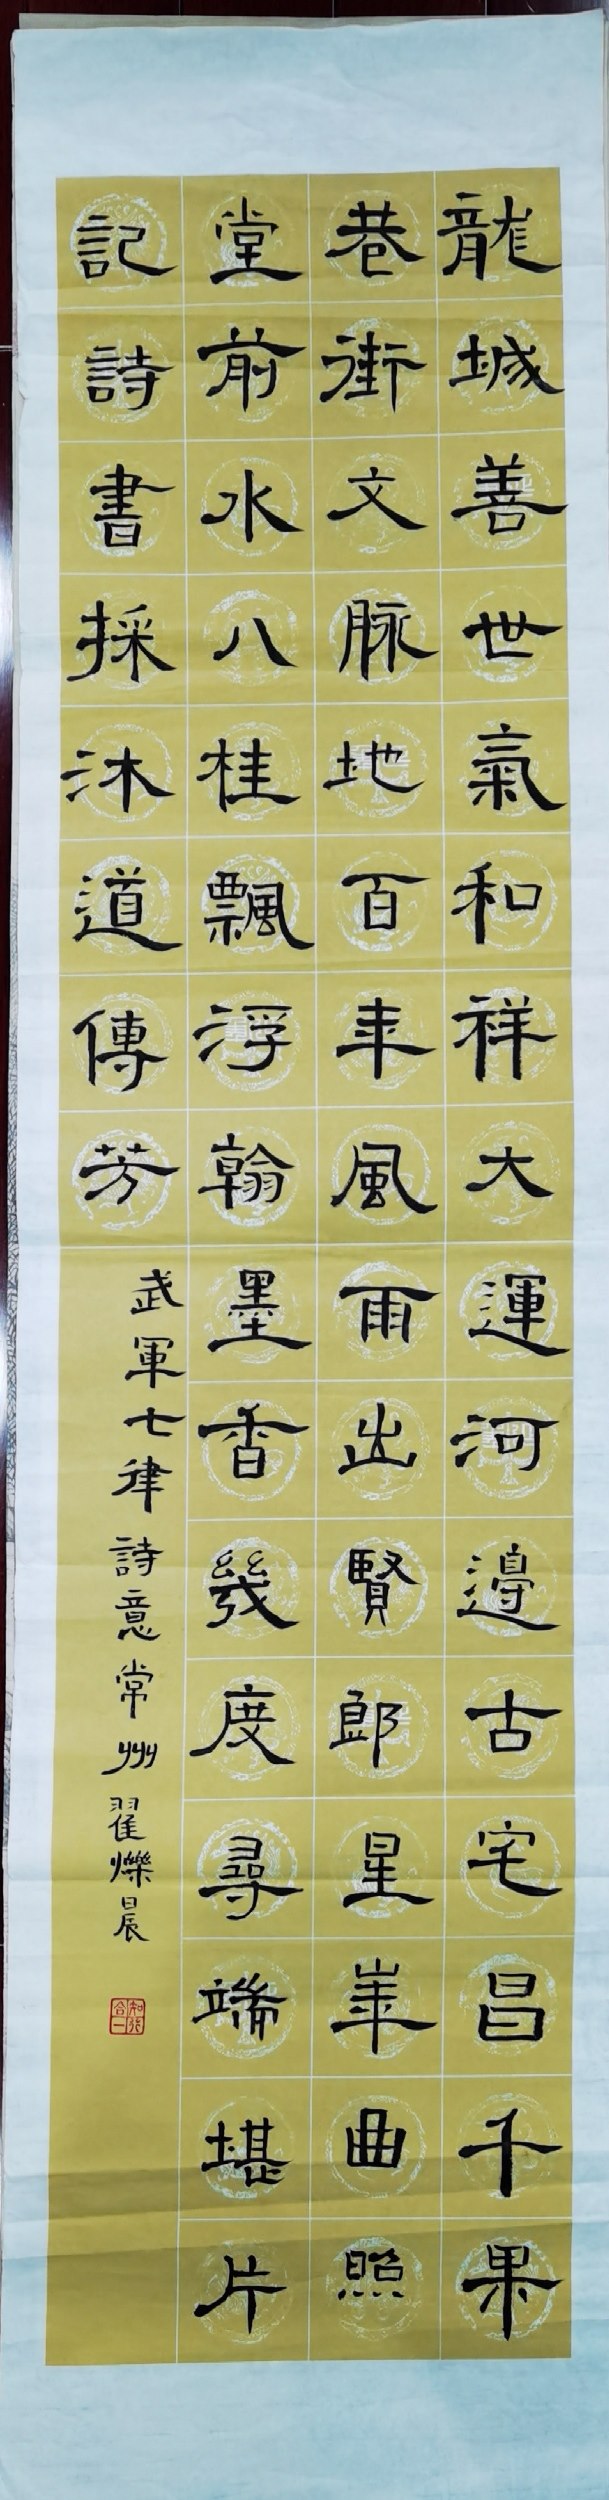 龍城善世氣和祥大運河邊古宅昌千果
巷街文脉地百年風雨出賢郎星峯曲照
堂前水八桂飄浮翰墨香幾度尋端堪片
記詩書採沐道傳芳
武軍七律詩意常州翟爍晨
知行合一